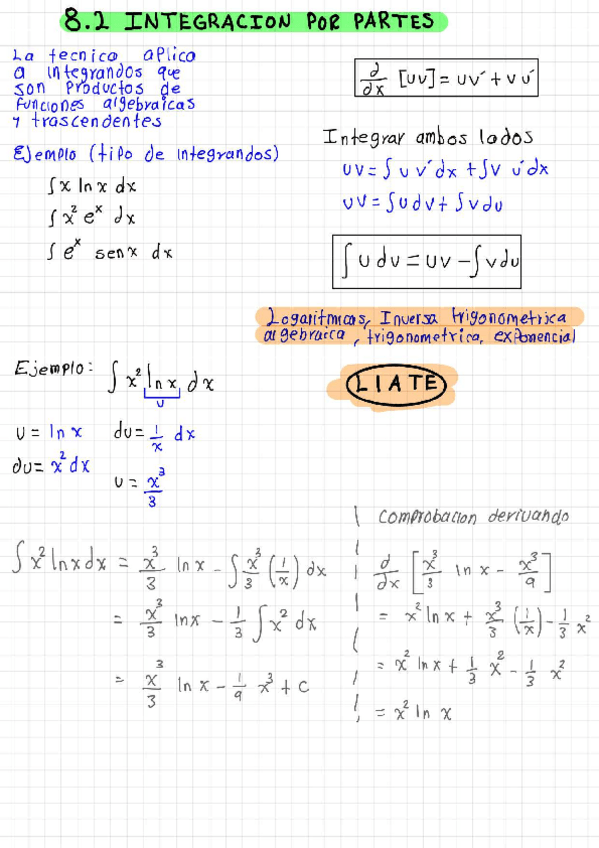 8.2 INTEGRACION POR PARTES
La tecnica aplica
a integrandos que
son productos de
funciones algebraicas
y trascendentes
Ejemplo (tipo de integrandos)
∫x ln x dx
∫x² eˣ dx
∫ eˣ senx dx
d/dx [uv] = uv' + v u'
Integrar ambos lados
uv = ∫ u v' dx + ∫v u' dx
uv = ∫u dv + ∫v du
∫ u dv = uv - ∫v du
Logaritmicas, Inversa trigonometrica
algebraica, trigonometrica, exponencial
LIATE
Ejemplo: ∫ x² ln x dx
u
u = ln x du = 1/x dx
du = x² dx u = x³/3
∫ x² ln x dx = x³/3 ln x - ∫ x³/3 (1/x) dx
= x³/3 lnx - 1/3 ∫ x² dx
= x³/3 ln x - 1/9 x³ + c
comprobacion derivando
d/dx [x³/3 ln x - x³/9]
= x² ln x + x³/3 (1/x) - 1/3 x²
= x² ln x + 1/3 x² - 1/3 x²
= x² ln x